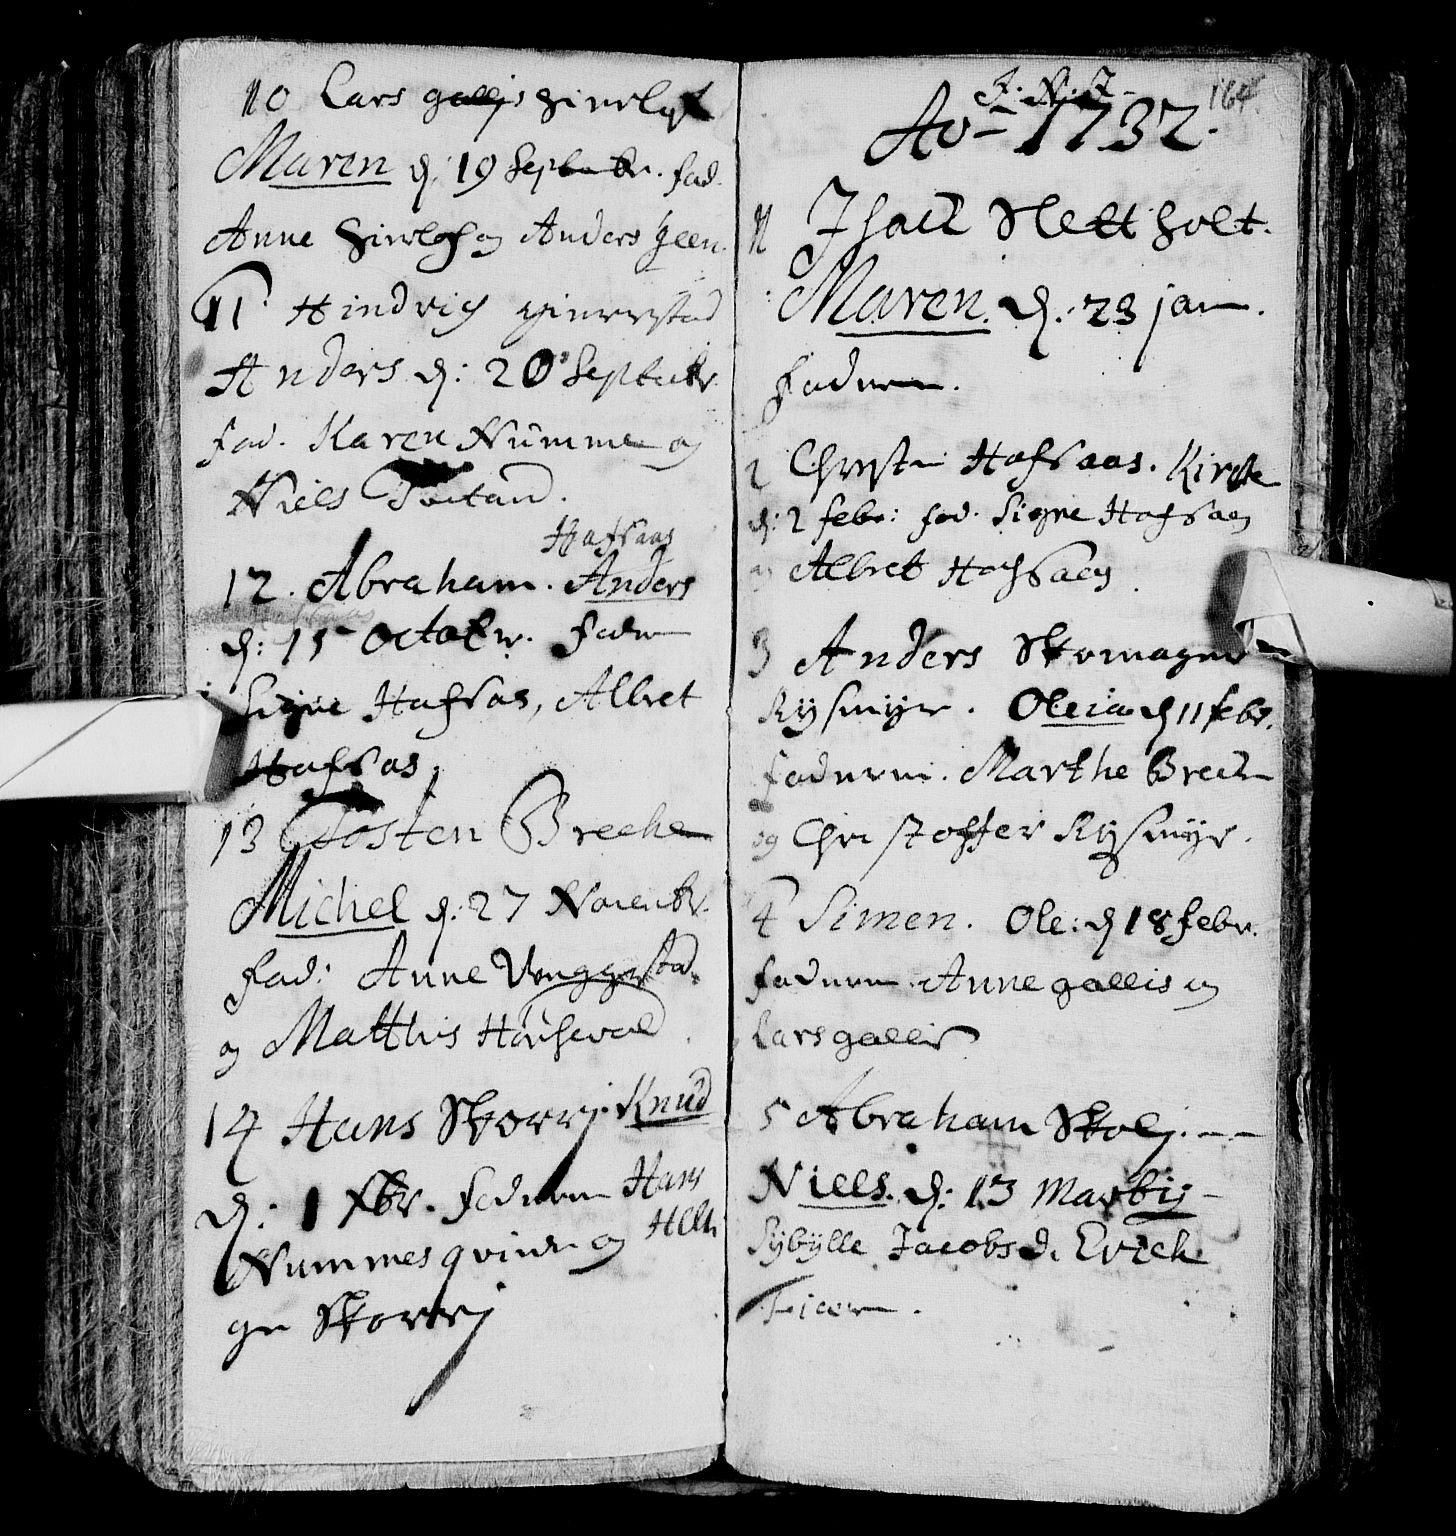 10 Lars gallis
Maren d. 19 Septembr. fad.
Anne og Anders
11 Hindrich gierrestad
Anders d: 20 Septembr
fad. Karen Numme og
Niels
Hafsaas
12. Abraham. Anders
d: 15 Octobr. fadr
Signe Hafsaas, Albret
Hafsaas.
13 Tosten Brecke
Michel d: 27 Novembr.
fad: Anne
og Matthis
14 Hans Skorrj. Knud
d: 1 Xbr. fadrene Hans
Nummes qvinde og
Skorrj
J. N. J. 164
Ao 1732.
1 Isach Slettholt.
Maren. d. 23 jan.
fadrene.
2 Christen Hafsaas. Kirste
d: 2 febr: fad. Signe Hafsaas
og Albret Hafsaas
3 Anders Skomager
Rysmyr. Oleia d 11 febr.
fadrene. Marthe Brecke
og Christoffer Rysmyr.
4 Simen. Ole: d 18 febr.
fadrene. Anne gallis og
Lars gallis
5 Abraham Skolj.
Niels. d: 13 Martij
Sybylle Jacobsd. Erich